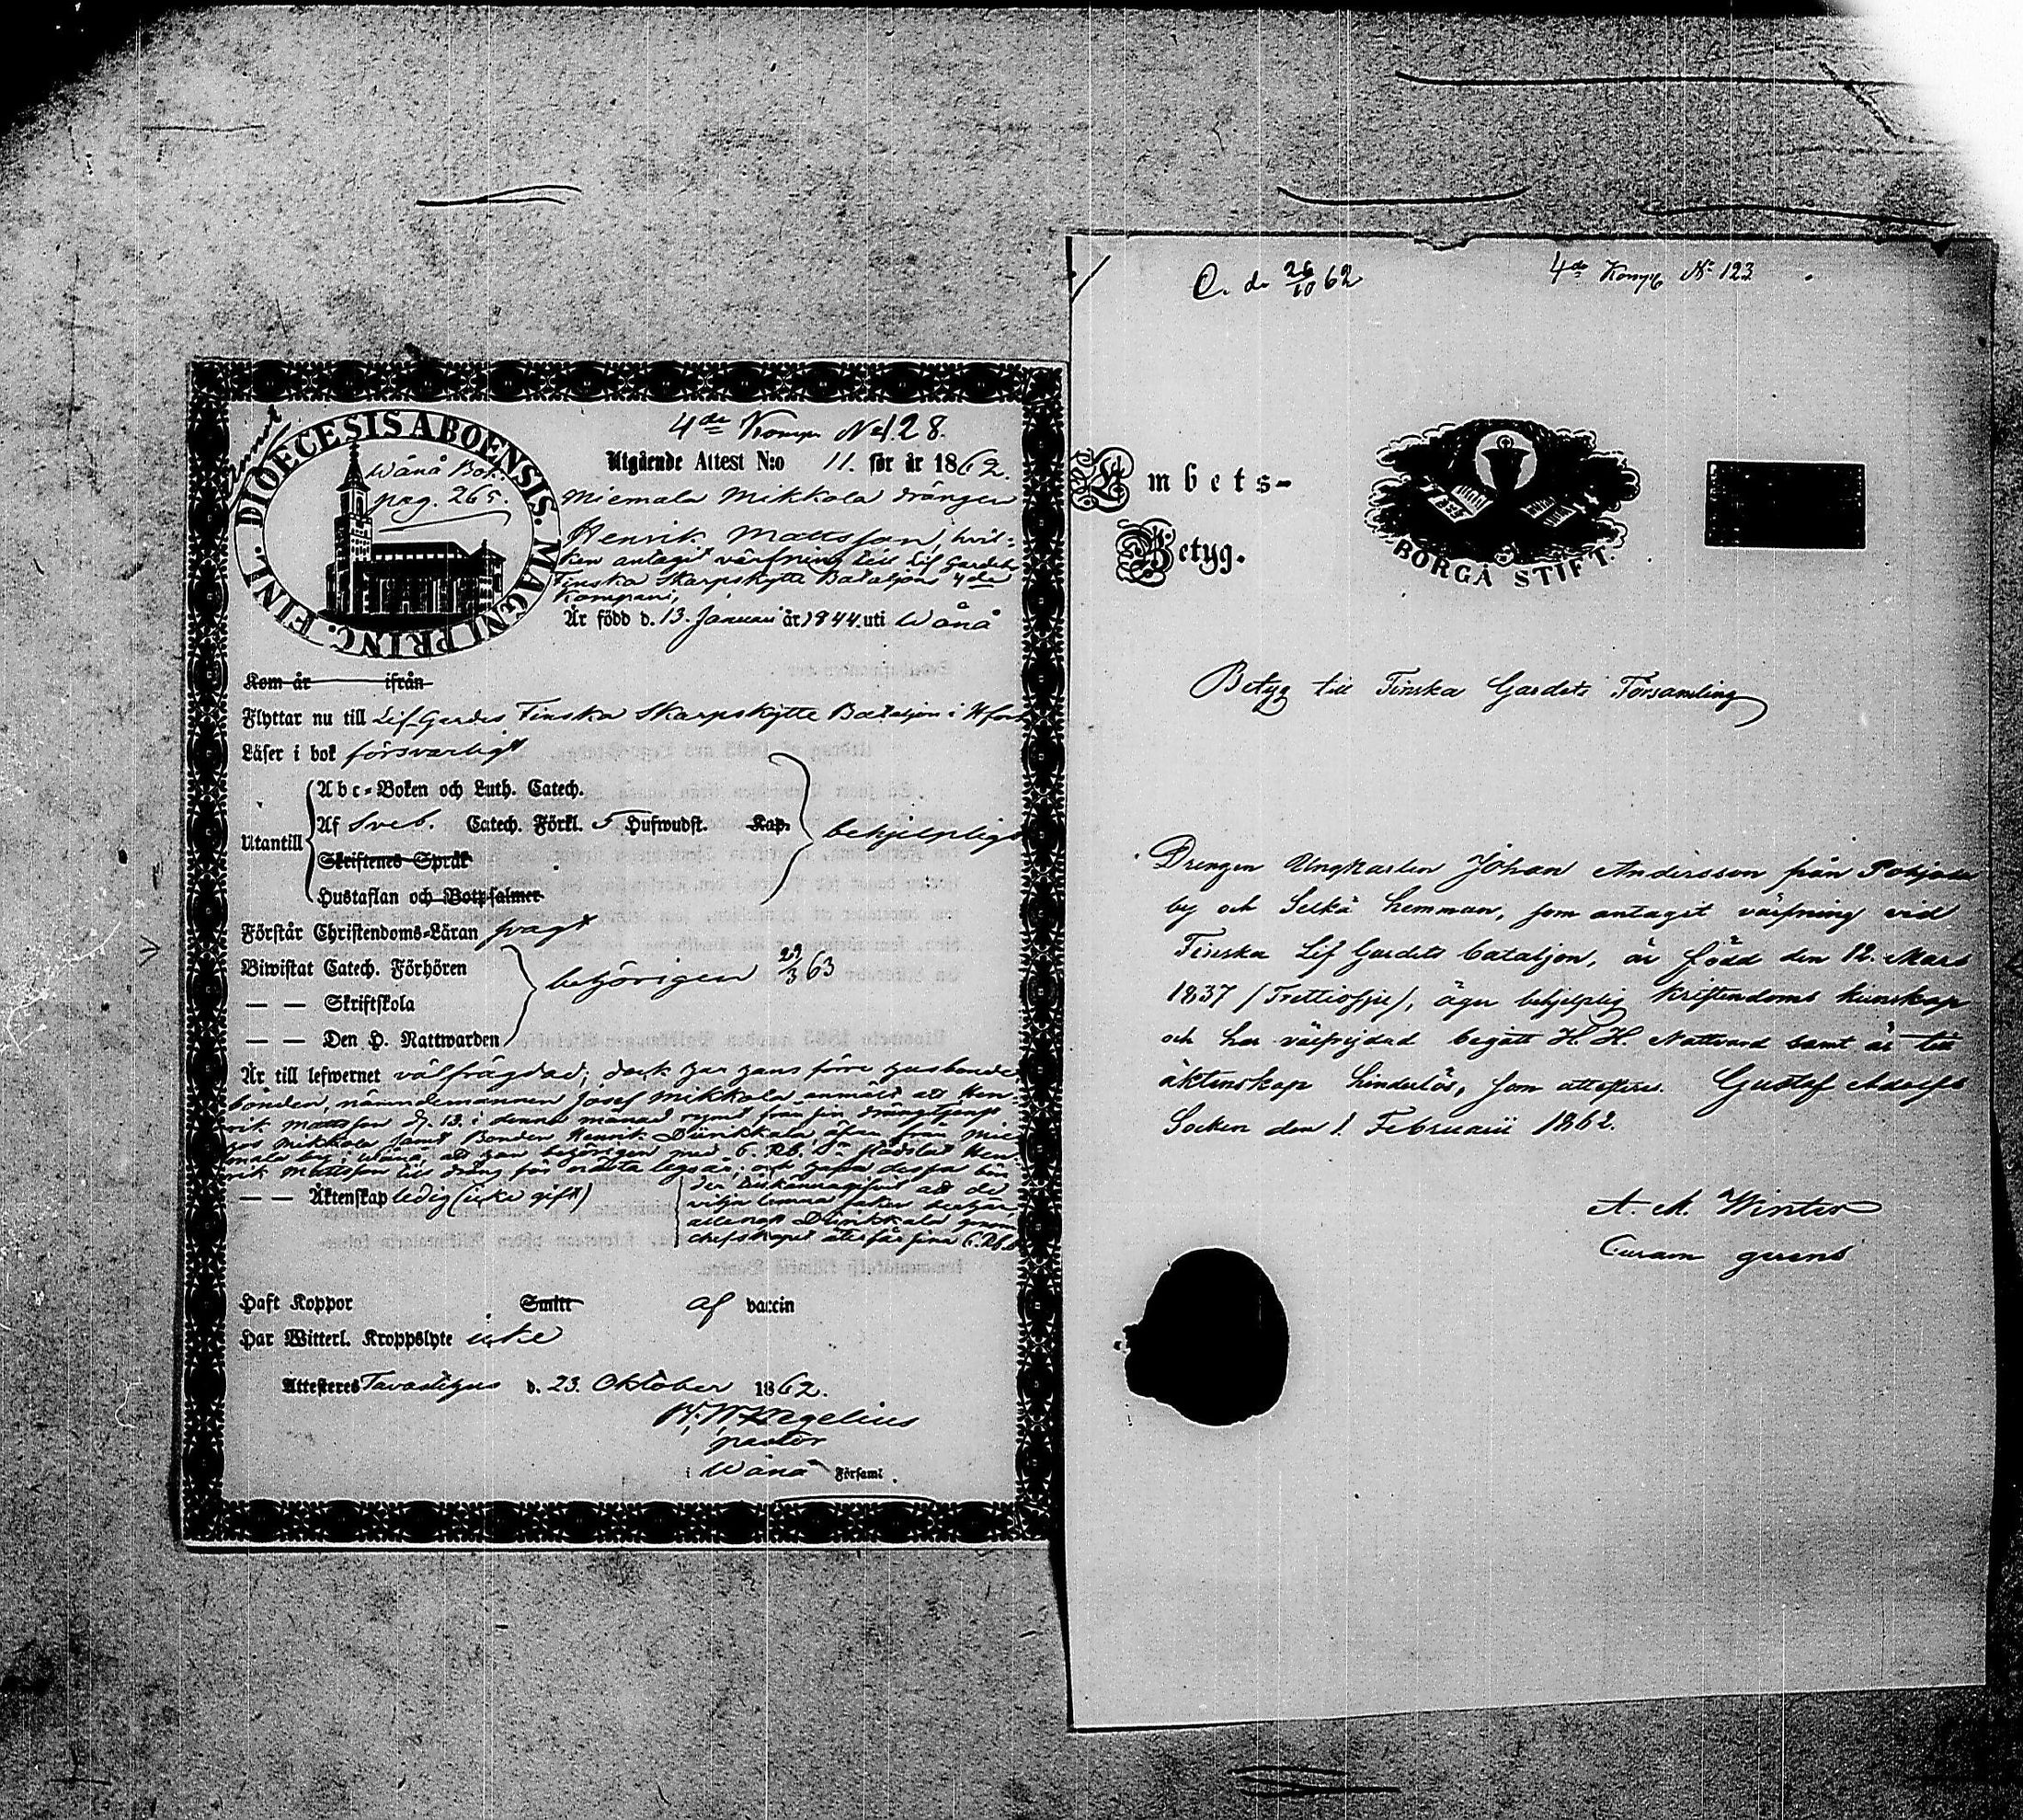 4de Komp. No 128.
Utgående Attest N:o 11. för år 1862.
DIOECESIS ABOENSIS. MAGNI PRINC. FINL.
Wånå Bok.
pag. 265.
Miemala Mikkola drängen
Henrik Mattsson, hvil-
ken antagit värfning till Lif Gardets
Finska Skarpskytte Bataljons 4de
Kompani,
Är född d. 13. Januari år 1844. uti Wånå
Kom år ifrån
Flyttar nu till Lif-Gardes Finska Skarpskytte Bataljon i Hfors
Läser i bok försvarligt
Utantill
Abc-Boken och Luth. Catech.
Af Sveb. Catech. Förkl. 5 Hufwudst. Kap.
Skriftenes Språk
Hustaflan och Botpsalmer
behjelpligt
Förstår Christendoms-Läran svagt
Biwistat Catech. Förhören
— — Skriftskola
— — Den H. Nattwarden
behörigen 22/3 63
Är till lefwernet välfrägdad; dock har hans förre husbonde
bonden, nämndemannen Josef Mikkola anmält att Hen-
rik Mattsson d. 13. i denna månad rymt från sin drängtjenst
hos Mikkola samt Bonden Henrik Dünkkala, äfven från Mie-
mala by i Wånå, att han behörigen med 6. Rb. S. städslat Hen-
rik Mattsson till dräng för nästa legoår; och hafva dessa bön-
der tillkännagifvit att de
vilja lemna saken
allenast Dünkkala genom
chefskapet återfår sina 6. Rb. S.
— — Äktenskap ledig (icke gift)
Haft Koppor Smitt af vaccin
Har Witterl. Kroppslyte icke
Attesteres Tavastehus d. 23. Oktober 1862.
pastor
i Wånå Församl.
C. d. 26/10 62
4de Komp No 123
Embets-
Betyg.
BORGÅ STIFT.
Betyg till Finska Gardets Församling
Drengen Ungkarlen Johan Andersson från Pohjola
by och Selkä hemman, som antagit värfning vid
Finska Lif Gardets bataljon, är född den 12. Mars
1837 (Trettiosju), äger behjelplig kristendoms kunskap
och har välfrejdad begått H. H. Nattvard samt är till
äktenskap hinderlös, som attesteres. Gustaf Adolfs
Socken den 1. Februarii 1862.
A. A. Winter
Curam gerens